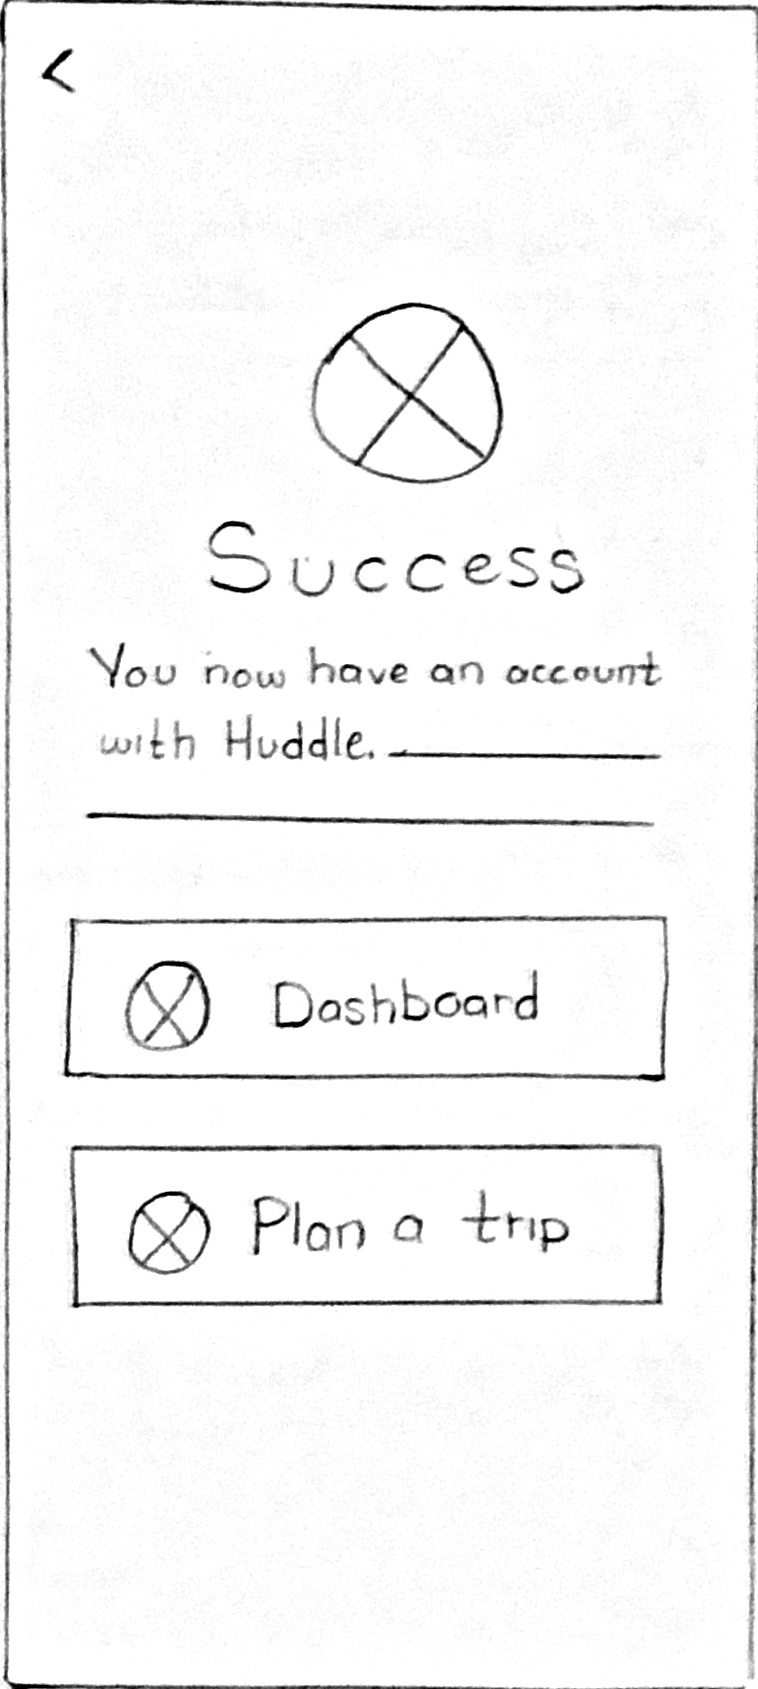 <
Success
You now have an account
with Huddle.
Dashboard
Plan a trip